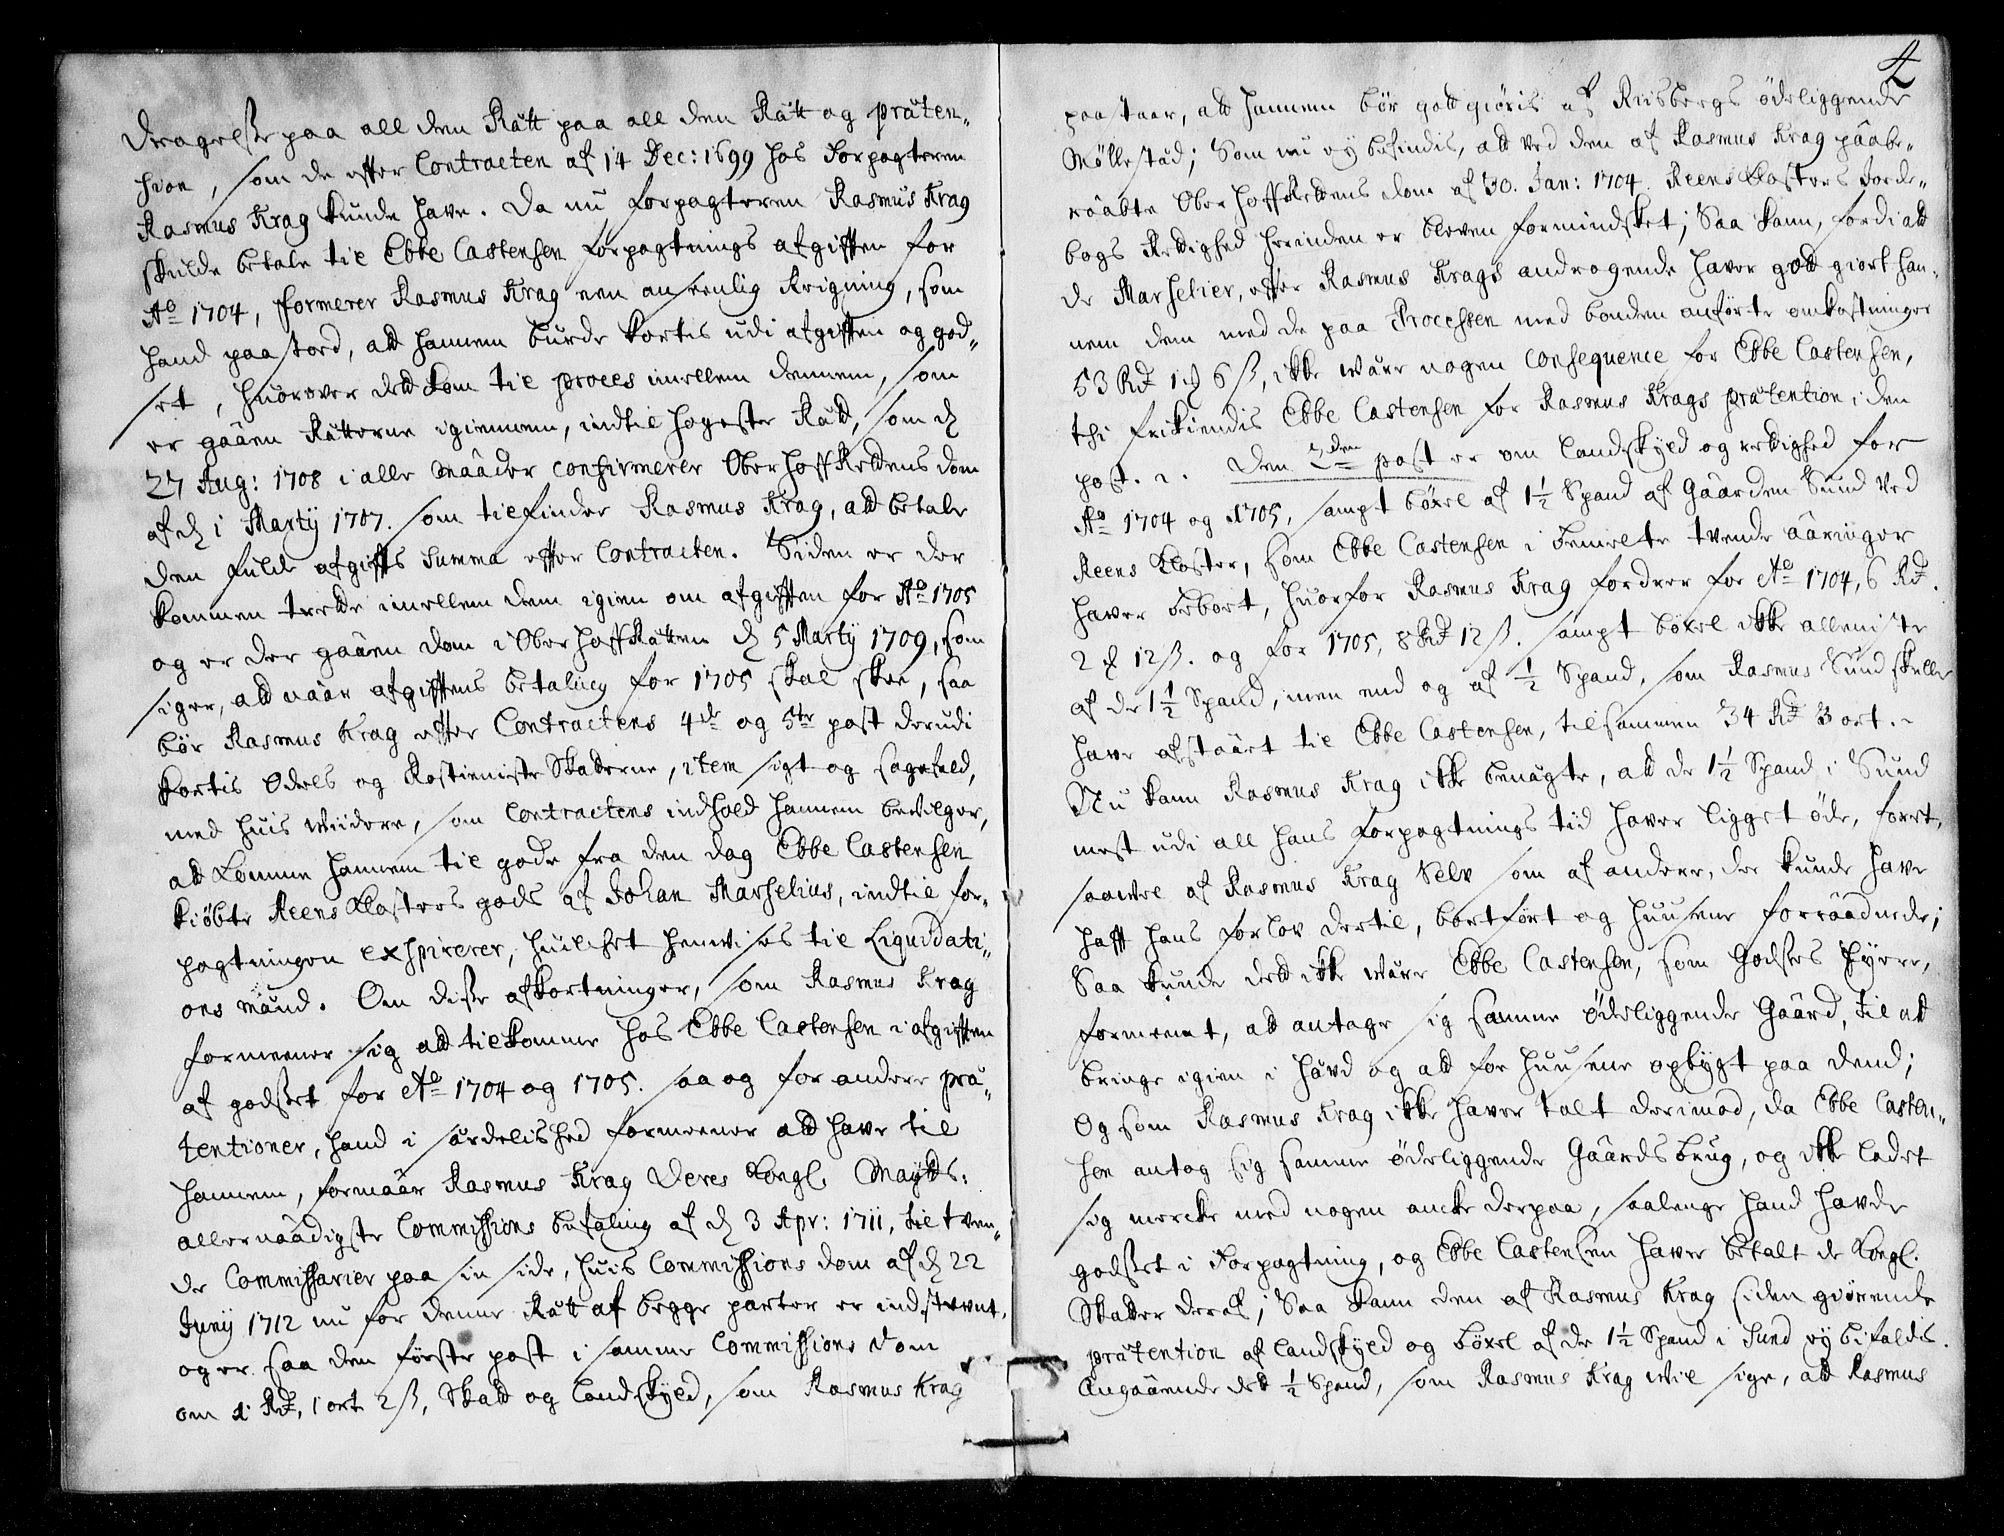 dragelse paa all den Rætt paa all den Rætt og præten-
tion, som de effter Contracten af 14 Dec: 1699 hos Forpagteren
Rasmus Krag kunde have. Da nu forpagteren Rasmus Krag
skulde betale til Ebbe Castensen forpagtnings afgifften for
Ao 1704, formerer Rasmus Krag een anseenlig Reigning, som
hand paastoed, att hannem burde kortes udi afgifften og god-
set, huorover dett kom til proces imellem dennem, som
er gaaen Rætterne igiennem, indtil høyeste Rætt, som d
27 Aug: 1708 i alle maader confirmerer OberhoffRettens dom
af d 1 Martij 1707. som tilfinder Rasmus Krag, att betale
den fulde afgiffts Summa effter Contracten. Siden er der
kommen trette imellem dem igien om afgifften for Ao 1705
og er der gaaen dom i OberhoffRætten d 5 Martij 1709, som
siger, att naar afgifftens betaling for 1705 skal skee, saa
bør Rasmus Krag effter Contractens 4de og 5te post derudi
kortis Odels og Rostieniste Skatterne, item sigt og sagefald,
med huis widere, som Contractens indhold hannem bevilger,
att komme hannem til gode fra den dag Ebbe Castensen
kiøbte Reens Klosters gods af Johan Marselius, indtil for-
pagtningen exspirerer, huilchet henvises til Liquidati-
ons mænd. Om disse afkortninger, som Rasmus Krag
formeener sig att tilkomme hos Ebbe Castensen i afgifften
af godset for Ao 1704 og 1705. saa og for andere præ-
tentioner, hand i særdelished formeener att have til
hannem, formaar Rasmus Krag Deres Kongl. Mayts:
allernaadigste Commissions befaling af d 3 Apr: 1711, til tven-
de Commissarier paa sin side, huis Commissions dom af d 22
Junij 1712 nu for denne Rætt af begge parter er indstevnt,
og er saa den første post i samme Commissions dom
om 1 Rd, 1 ort 2 ß, Skatt og landskyld, som Rasmus Krag
4
paastaar, att hannem bør gott giøris af Riisbergs ødeliggende
Møllestad; Som nu ey befindis, att ved den af Rasmus Krag paabe-
raabte OberhoffRettens dom af 30. Jan: 1704. Reens Klosters Jorde-
bogs Rettighed herinden er bleven formindsket; Saa kann, fordi att
de Marselier, effter Rasmus Krags andragende haver gott giort han-
nem dem med de paa Processen med bonden anførte omkostninger
53 Rd 1 6 ß, ikke være nogen Consequence for Ebbe Castensen,
thi frikiendis Ebbe Castensen for Rasmus Krags prætention i den
post. Den 2den post er om landskyld og rettighed for
Ao 1704 og 1705, sampt bøxel af 1½ Spand af Gaarden Sund ved
Reens Kloster, som Ebbe Castensen i bemelte tvende aaringer
haver bebort, huorfor Rasmus Krag fordrer for Ao 1704, 6 Rd.
2 12 ß. og for 1705, 8 Rd 12 ß. sampt bøxel ikke alleniste
af de 1½ Spand, men end og af ½ Spand, som Rasmus Sund skulle
have afstaaet til Ebbe Castensen, tilsammen 34 Rd 3 ort.
Nu kann Rasmus Krag ikke benægte, att de 1½ Spand i Sund
mest udi all hans forpagtnings tid haver ligget øde,
saavel af Rasmus Krag Selv som af andere, der kunde have
hafft hans forlov dertil, bortført og huusene forraadnede;
Saa kunde dett ikke være Ebbe Castensen, som Godsets Eyere,
formeent, att antage sig samme ødeliggende Gaard, til att
bringe igien i hævd og att for huusene opbygt paa dend;
Og som Rasmus Krag ikke haver talt derimod, da Ebbe Casten-
sen antog sig samme ødeliggende Gaards brug, og ikke ladet
sig mercke med nogen ancke derpaa, saalenge hand havde
godset i Forpagtning, og Ebbe Castensen haver betalt de Kongl.
Skatter deraf; Saa kann den af Rasmus Krag siden giørende
prætention af landskyld og bøxel af de 1½ Spand i Sund ey bifaldis.
Angaaende dett ½ Spand, som Rasmus Krag wil sige, att Rasmus